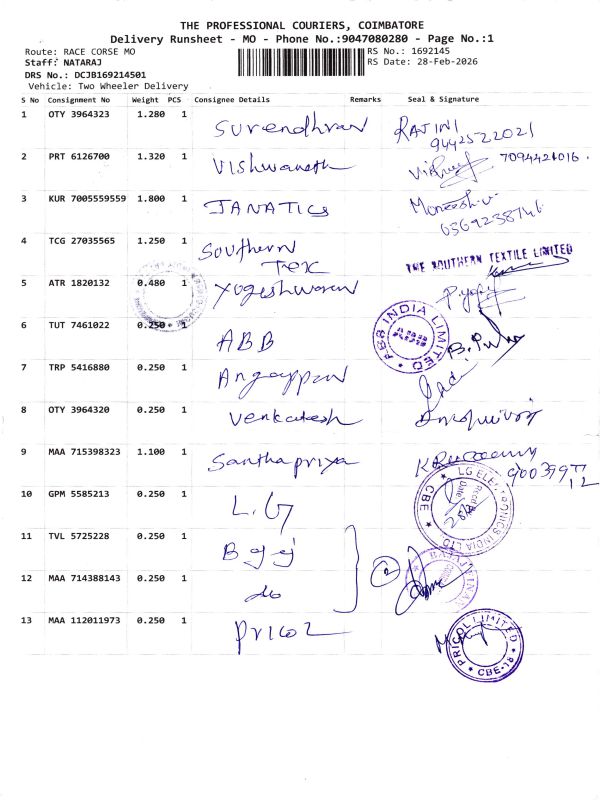 THE PROFESSIONAL COURIERS, COIMBATORE
Delivery Runsheet - MO - Phone No.:9047080280 - Page No.:1
Route: RACE CORSE MO RS No.: 1692145
Staff: NATARAJ RS Date: 28-Feb-2026
DRS No.: DCJB169214501
Vehicle: Two Wheeler Delivery
S No Consignment No Weight PCS Consignee Details Remarks Seal & Signature
1 OTY 3964323 1.280 1 Surendhran RAJINI
9442522021
2 PRT 6126700 1.320 1 Vishwanath 7094421016.
3 KUR 7005559559 1.800 1 JANATICS Moneesh.v
6369238746
4 TCG 27035565 1.250 1 Southern
Tex THE SOUTHERN TEXTILE LIMITED
5 ATR 1820132 0.480 1 Yogeshwaran
6 TUT 7461022 0.250 1 ABB ABB INDIA LIMITED
7 TRP 5416880 0.250 1 Angayppan
8 OTY 3964320 0.250 1 Venkatesh
9 MAA 715398323 1.100 1 Santhapriya
10 GPM 5585213 0.250 1 L.G LG ELECTRONICS INDIA LTD CBE
11 TVL 5725228 0.250 1 Bajaj
12 MAA 714388143 0.250 1 do 2
13 MAA 112011973 0.250 1 Pricol PRICOL LIMITED CBE-18